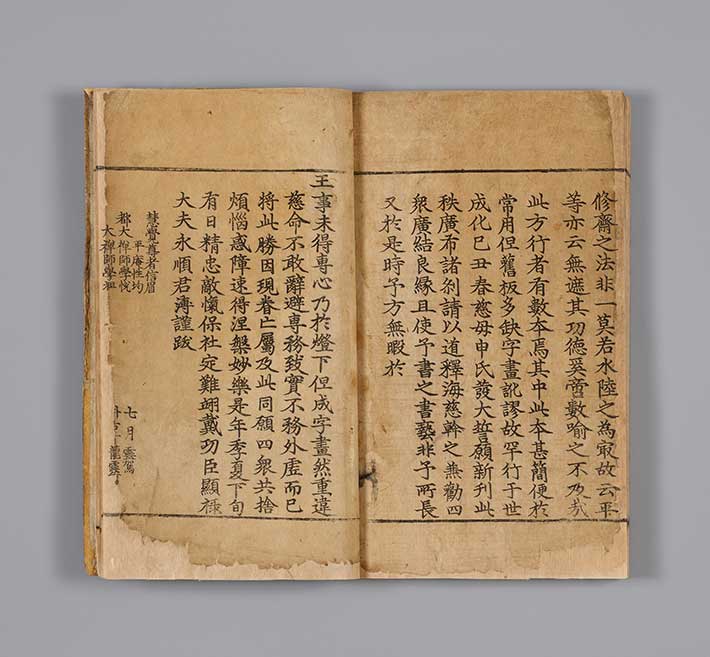 修齋之法非一莫若水陸之為㝡故云平
等亦云無遮其功德奚啻數喻之不及哉
此方行者有數本焉其中此本甚簡便於
常用但舊板多缺字畫訛謬故罕行于世
成化己丑春慈母申氏發大誓願新刊此
秩廣布諸刹請以道釋海慈幹之無勸四
衆廣結良緣且使予書之書藝非予所長
又於是時予方無暇於
王事未得專心乃於燈下但成字畫然重違
慈命不敢辭避專務致實不務外虛而已
將此勝因現眷亡屬及此同願四衆共捨
煩惱惑障速得涅槃妙樂是年季夏下旬
有日精忠敵愾保社定難翊戴功臣顯祿
大夫永順君溥謹跋
慧覺尊者信眉
平庵性均
都大禪師學悅
大禪師學祖
七月 雲駕
龍雲